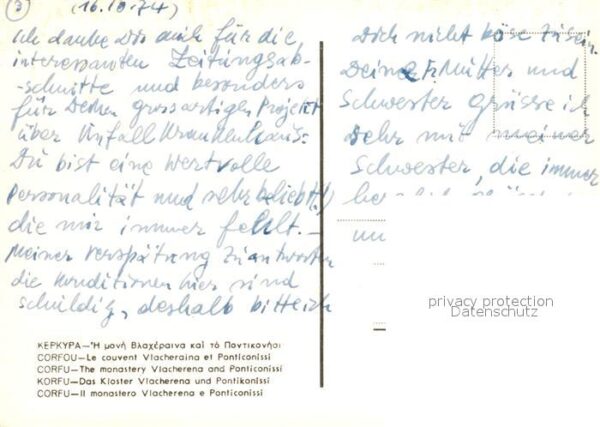 ③ (16.10.74)
Ich danke Dir auch für die
interessanten Zeitungsab-
-schnitte und besonders
für Deinen grossartigen Projekt
über Unfall Krankenhaus.
Du bist eine wertvolle
Personalität und sehr beliebt(!)
die mir immer fehlt. –
Meiner Verspätung zu antworten
die Konditionen hier sind
schuldig, deshalb bitte ich
Dich nicht böse zu sein.
Deine Mutter und
Schwester grüsse ich
sehr mit meiner
Schwester, die immer
un
privacy protection
Datenschutz
ΚΕΡΚΥΡΑ—Ἡ μονή Βλαχέραινα καί τό Ποντικονήσι
CORFOU—Le couvent Vlacheraina et Ponticonissi
CORFU—The monastery Vlacherena and Ponticonissi
KORFU—Das Kloster Vlacherena und Pontikonissi
CORFU—Il monastero Vlacherena e Ponticonissi